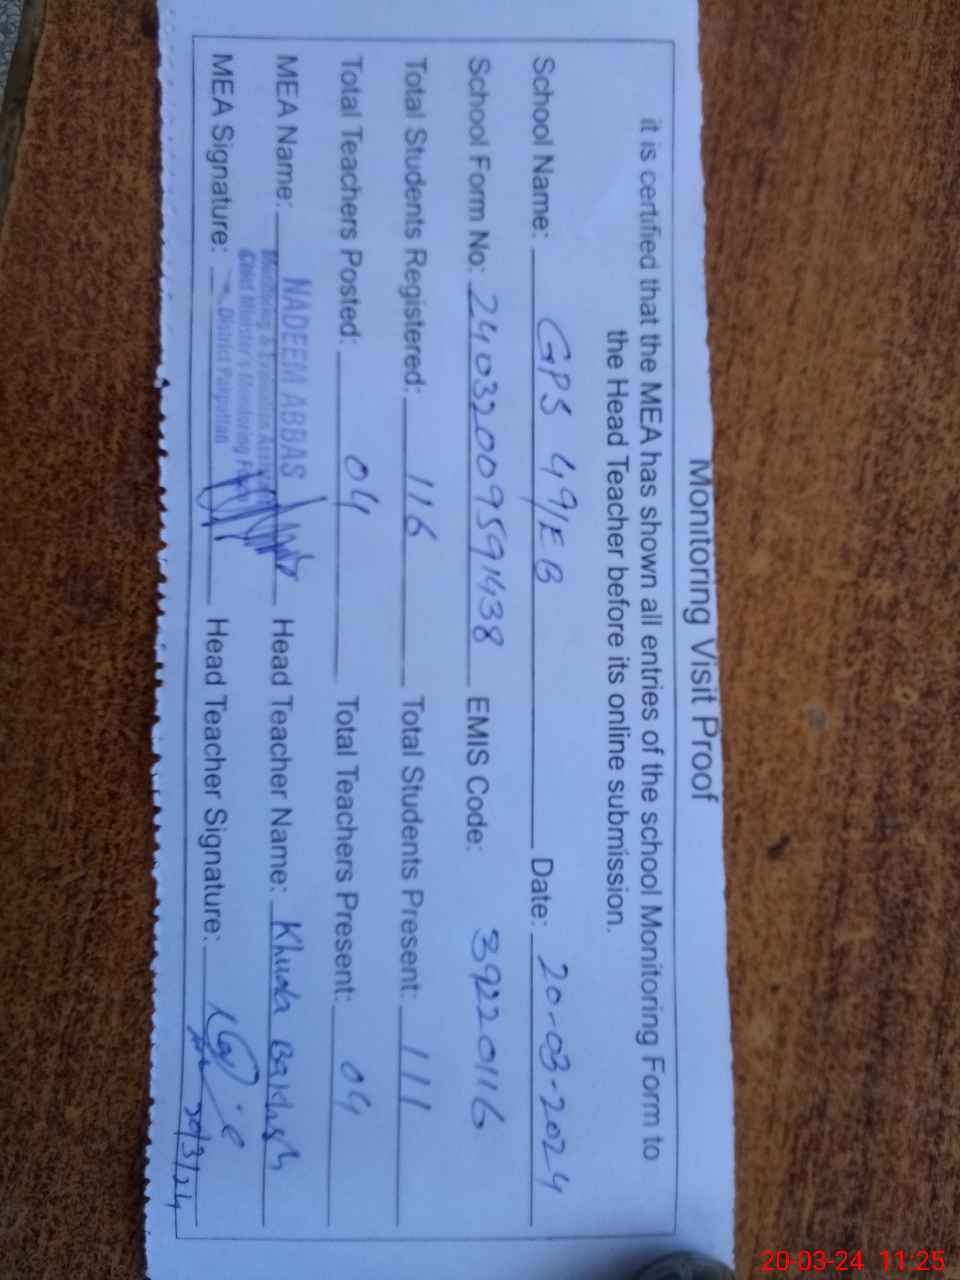 Monitoring Visit Proof
it is certified that the MEA has shown all entries of the school Monitoring Form to
the Head Teacher before its online submission.
School Name: GPS 49/EB Date: 20-03-2024
School Form No: 24032009591438 EMIS Code: 39220116
Total Students Registered: 116 Total Students Present: 111
Total Teachers Posted: 04 Total Teachers Present: 04
MEA Name: NADEEM ABBAS Head Teacher Name: Khuda Bakhsh
Monitoring & Evaluation
Chief Minister's Monitoring
MEA Signature: District Pakpattan Head Teacher Signature: 20/3/24
20-03-24 11:25